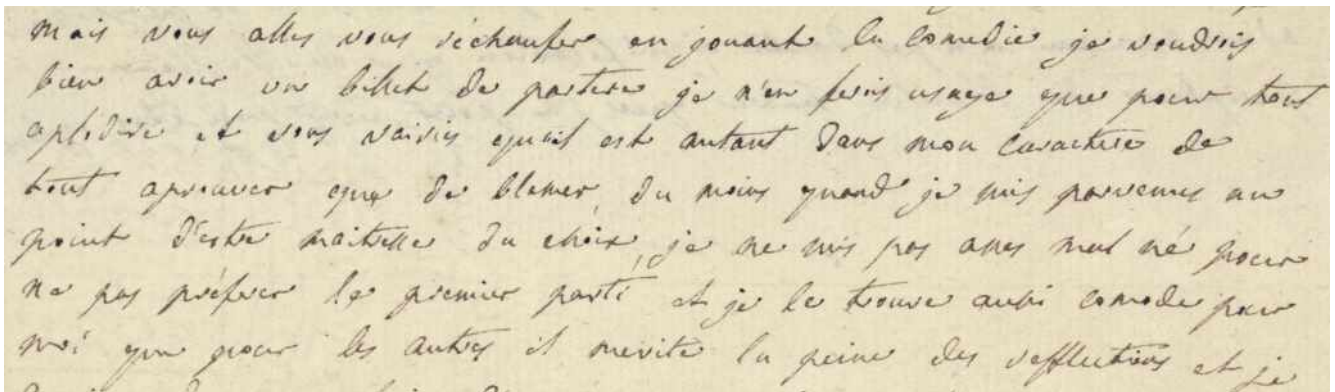 mais vous alles vous réchaufer en jouant la comedie je voudrois
bien avoir un billet de partere je n'en ferois usage que pour tout
aplodire et vous veriés qu'il est autant dans mon caractere de
tout aprouver que de blamer, du moins quand je suis parvenue au
point d'estre maitresse du choix, je ne suis pas asses mal né pour
ne pas préferer le premier parti et je le trouve aussi comode pour
moi que pour les autres il merite la peine des refflections et je